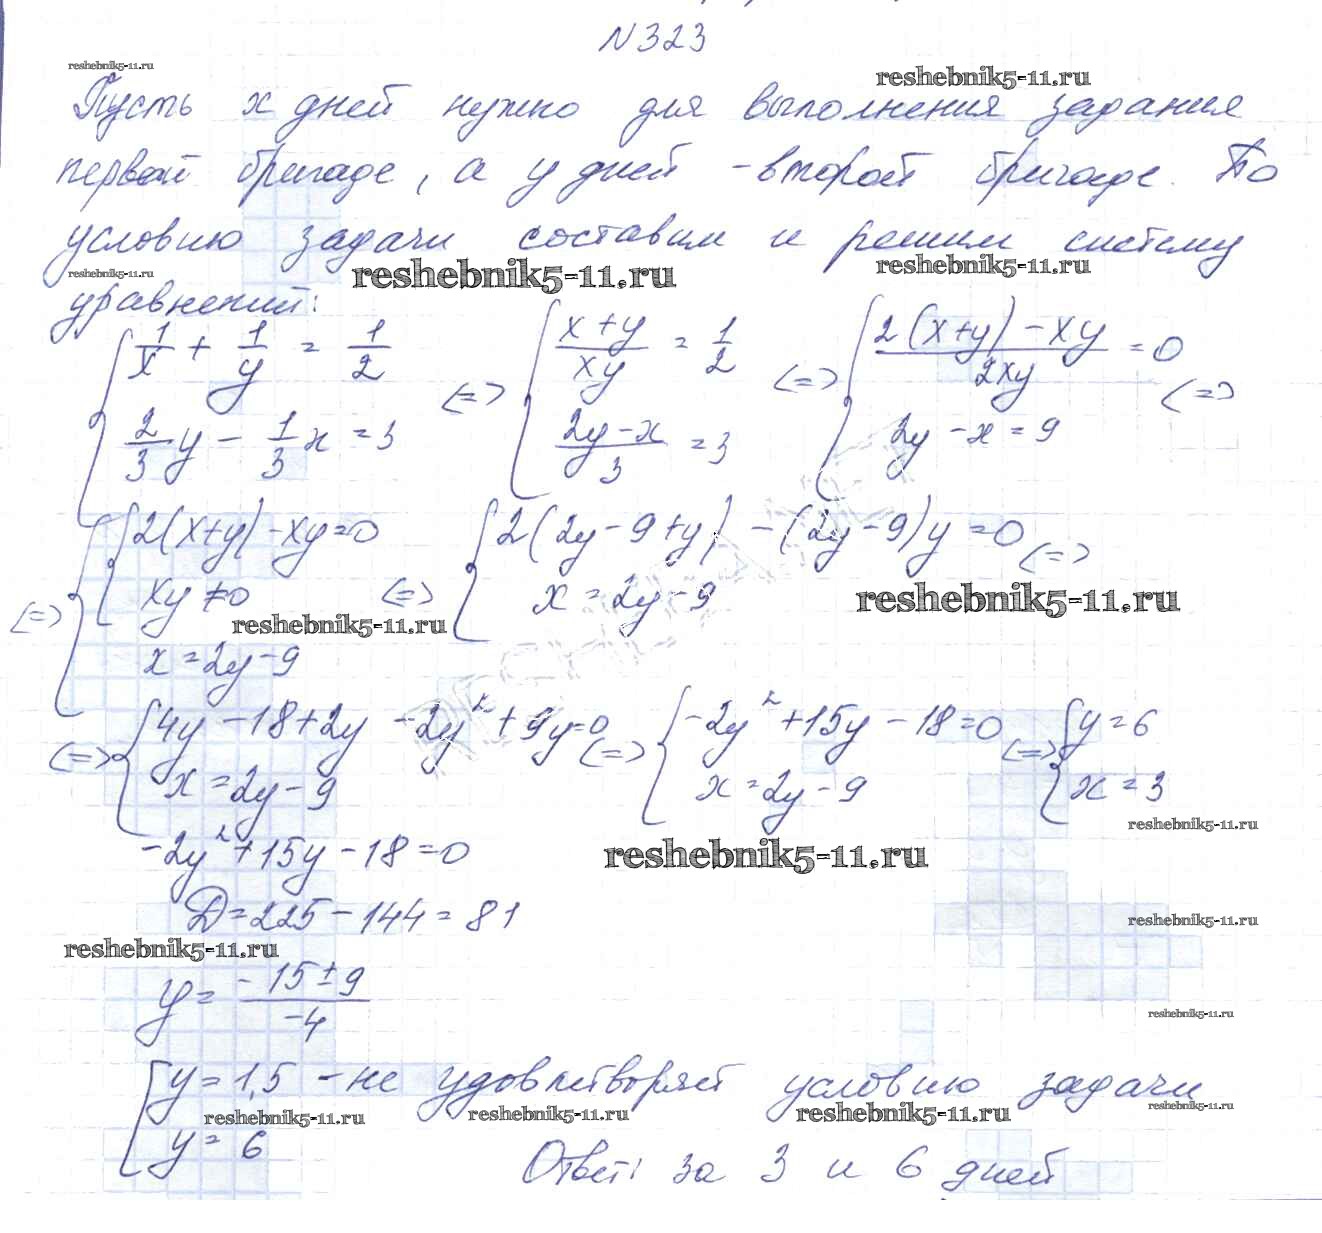 N 323
reshebnik5-11.ru
reshebnik5-11.ru
Пусть x дней нужно для выполнения задания
первой бригаде, а y дней - второй бригаде. По
условию задачи составим и решим систему
reshebnik5-11.ru
reshebnik5-11.ru
reshebnik5-11.ru
уравнений:
1/x + 1/y = 1/2 (=) (x+y)/xy = 1/2 (=) (2(x+y)-xy)/2xy = 0 (=)
2/3 y - 1/3 x = 3 (2y-x)/3 = 3 2y - x = 9
2(x+y)-xy=0 2(2y-9+y) - (2y-9)y = 0 (=)
(=) xy ≠ 0 (=) x = 2y-9
reshebnik5-11.ru
reshebnik5-11.ru
x = 2y-9
(=) 4y-18+2y-2y²+9y=0 (=) -2y²+15y-18=0 (=) y=6
x=2y-9 x=2y-9 x=3
reshebnik5-11.ru
-2y²+15y-18=0
reshebnik5-11.ru
Д=225-144=81
reshebnik5-11.ru
reshebnik5-11.ru
y = (-15±9)/-4
reshebnik5-11.ru
y=1,5 - не удовлетворяет условию задачи
reshebnik5-11.ru
reshebnik5-11.ru
reshebnik5-11.ru
reshebnik5-11.ru
y = 6
Ответ: за 3 и 6 дней